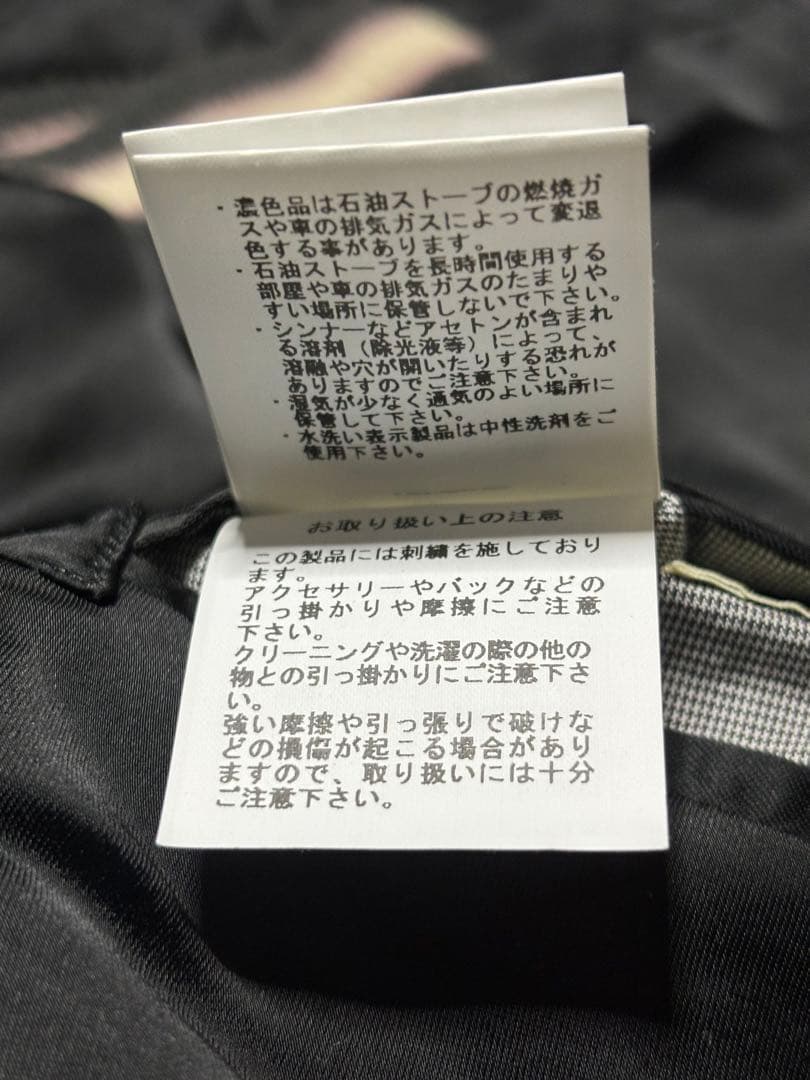 ・濃色品は石油ストーブの燃焼ガ
スや車の排気ガスによって変退
色する事があります。
・石油ストーブを長時間使用する
部屋や車の排気ガスのたまりや
すい場所に保管しないで下さい。
・シンナーなどアセトンが含まれ
る溶剤（除光液等）によって、
溶融や穴が開いたりする恐れが
ありますのでご注意下さい。
・湿気が少なく通気のよい場所に
保管して下さい。
・水洗い表示製品は中性洗剤をご
使用下さい。
お取り扱い上の注意
この製品には刺繍を施しており
ます。
アクセサリーやバックなどの
引っ掛かりや摩擦にご注意
下さい。
クリーニングや洗濯の際の他の
物との引っ掛かりにご注意下さ
い。
強い摩擦や引っ張りで破けな
どの損傷が起こる場合があり
ますので、取り扱いには十分
ご注意下さい。